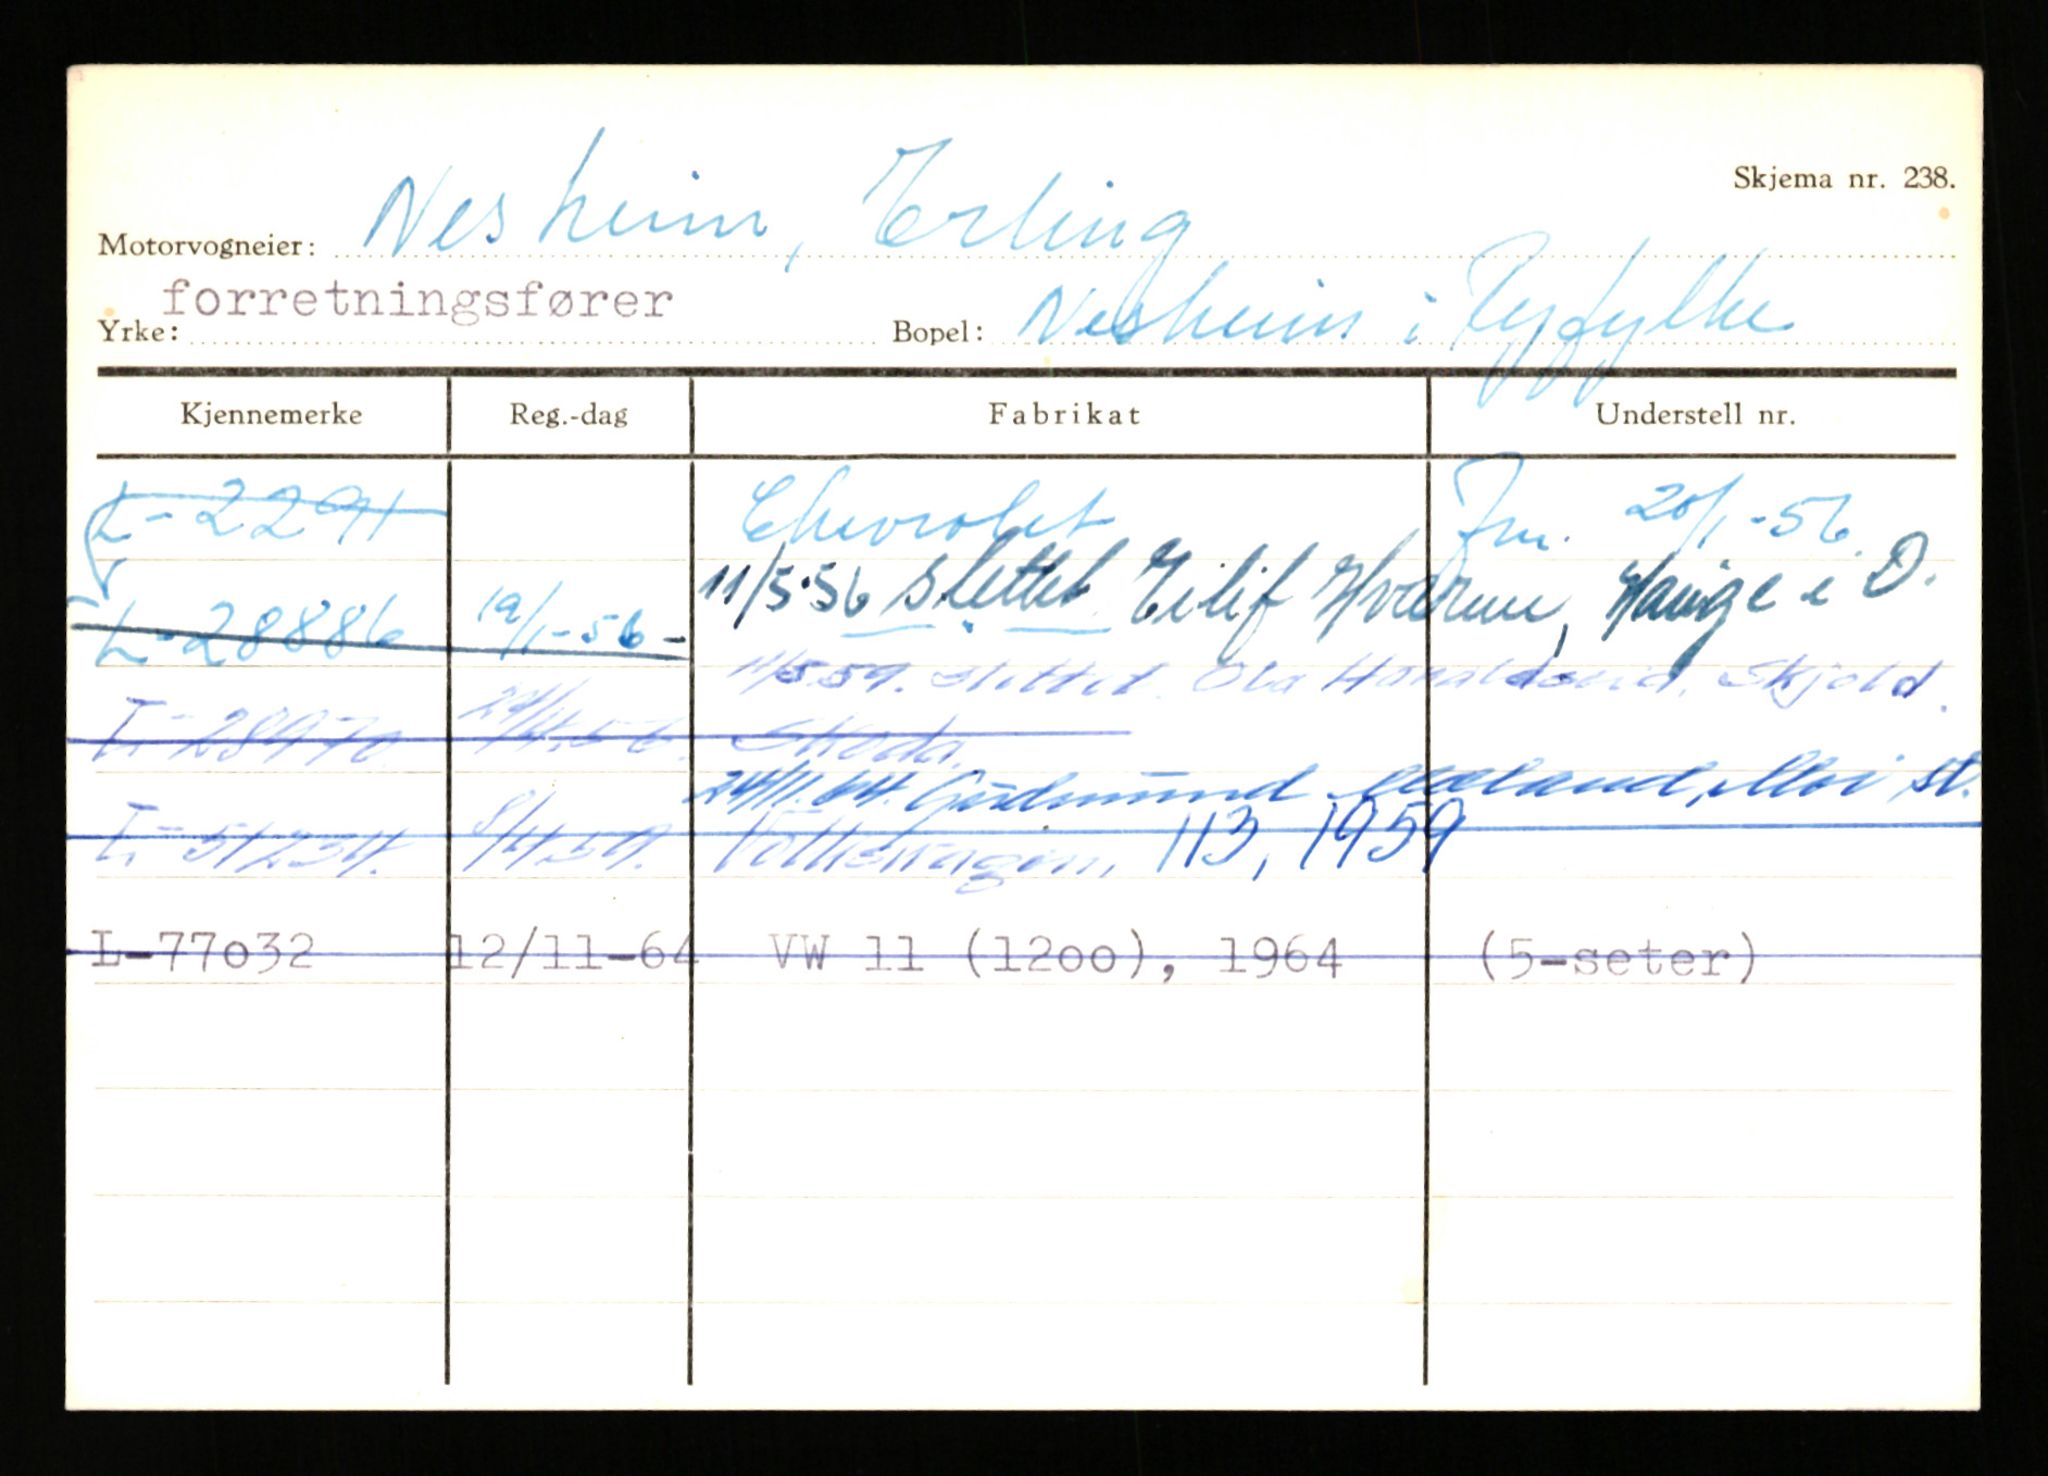 Skjema nr. 238.
Motorvogneier: Nesheim, Erling
forretningsfører
Yrke: Bopel: Nesheim i Ryfylke
Kjennemerke Reg.-dag Fabrikat Understell nr.
L-2291 Chevrolet Fm. 20/1-56.
11/5-56 slettet Eilif Hvarm, Hauge i D.
L-28886 19/1-56-
11/5.59. slettet. Ola Haraldseid, Skjold.
L-28970. 24/4.56. Skoda.
24/11.64. Gudmund st.
L-51234. 8/4.59. Volkswagen, 113, 1959
L-77032 12/11-64 VW 11 (1200), 1964 (5-seter)